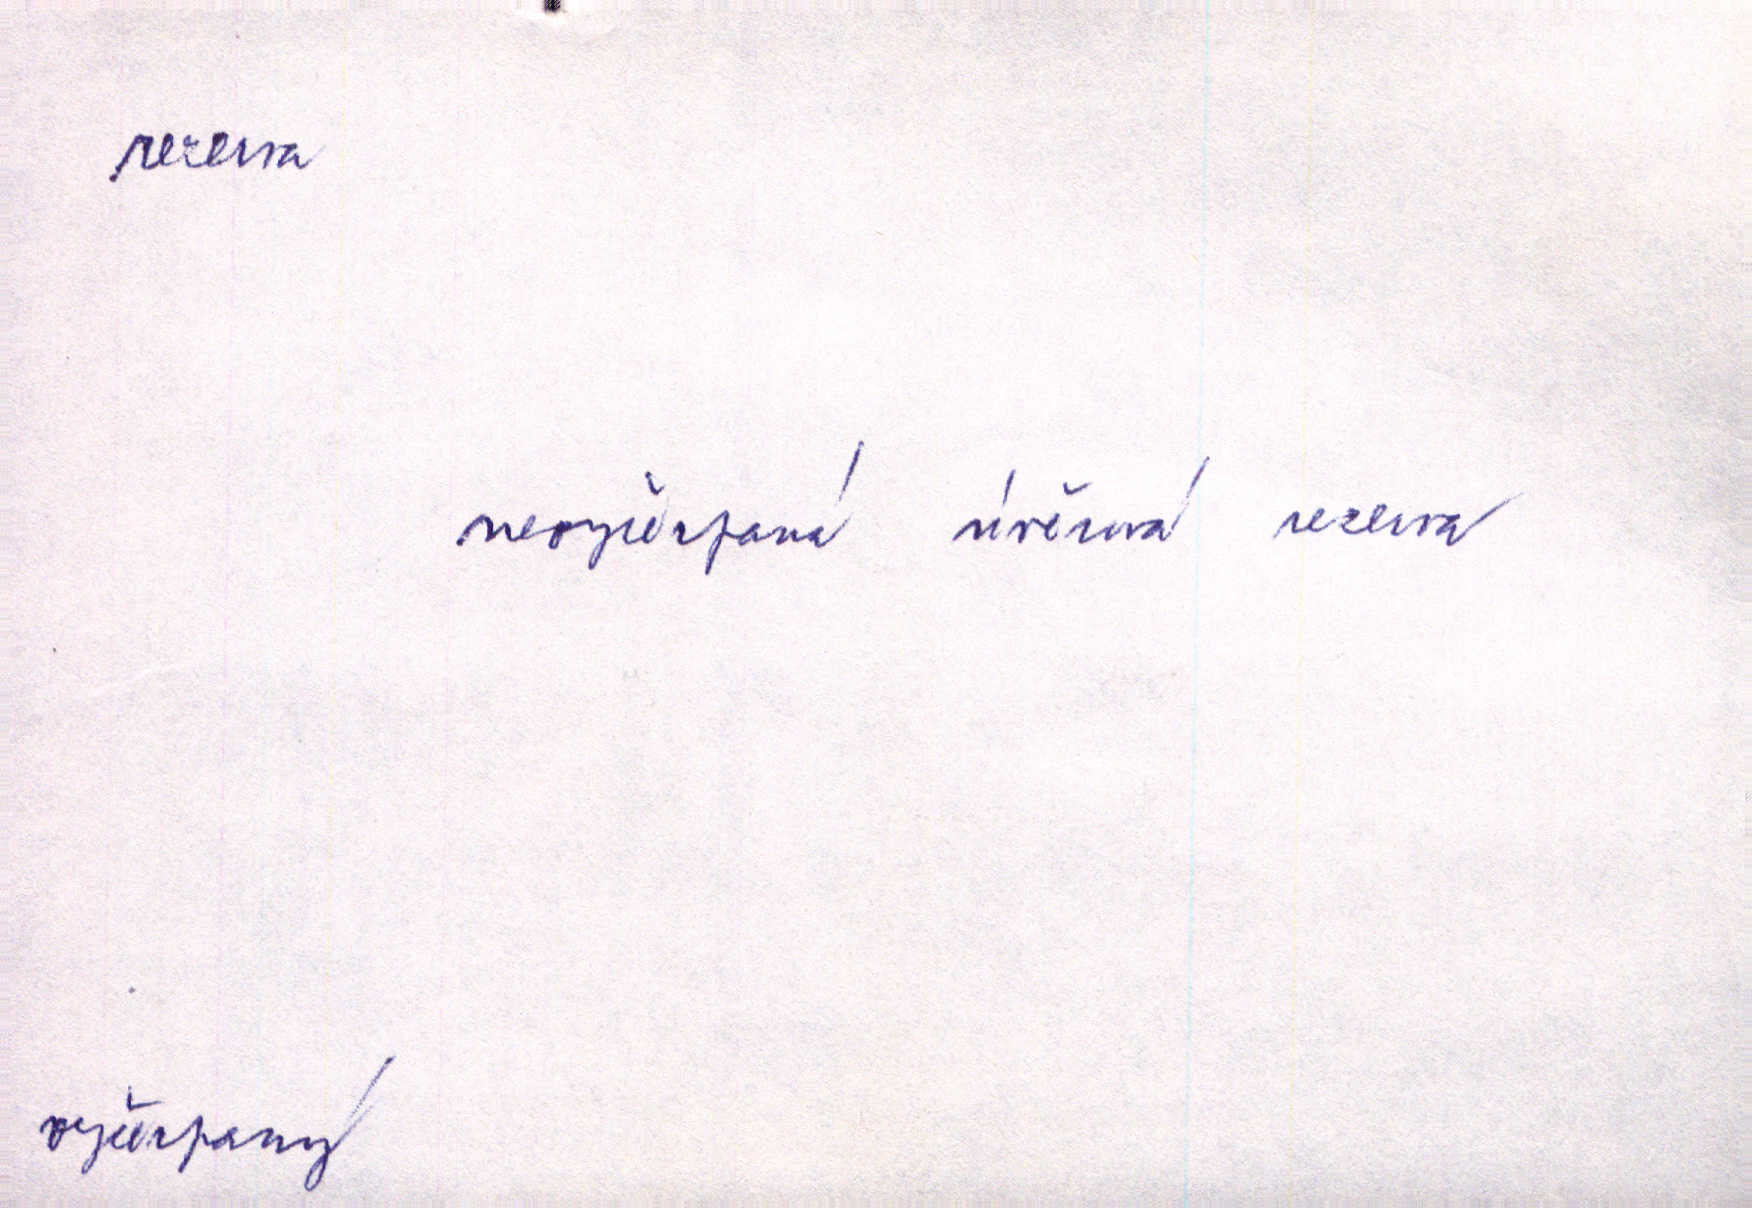 rezerva
nevyčerpaná úvěrová rezerva
vyčerpaný